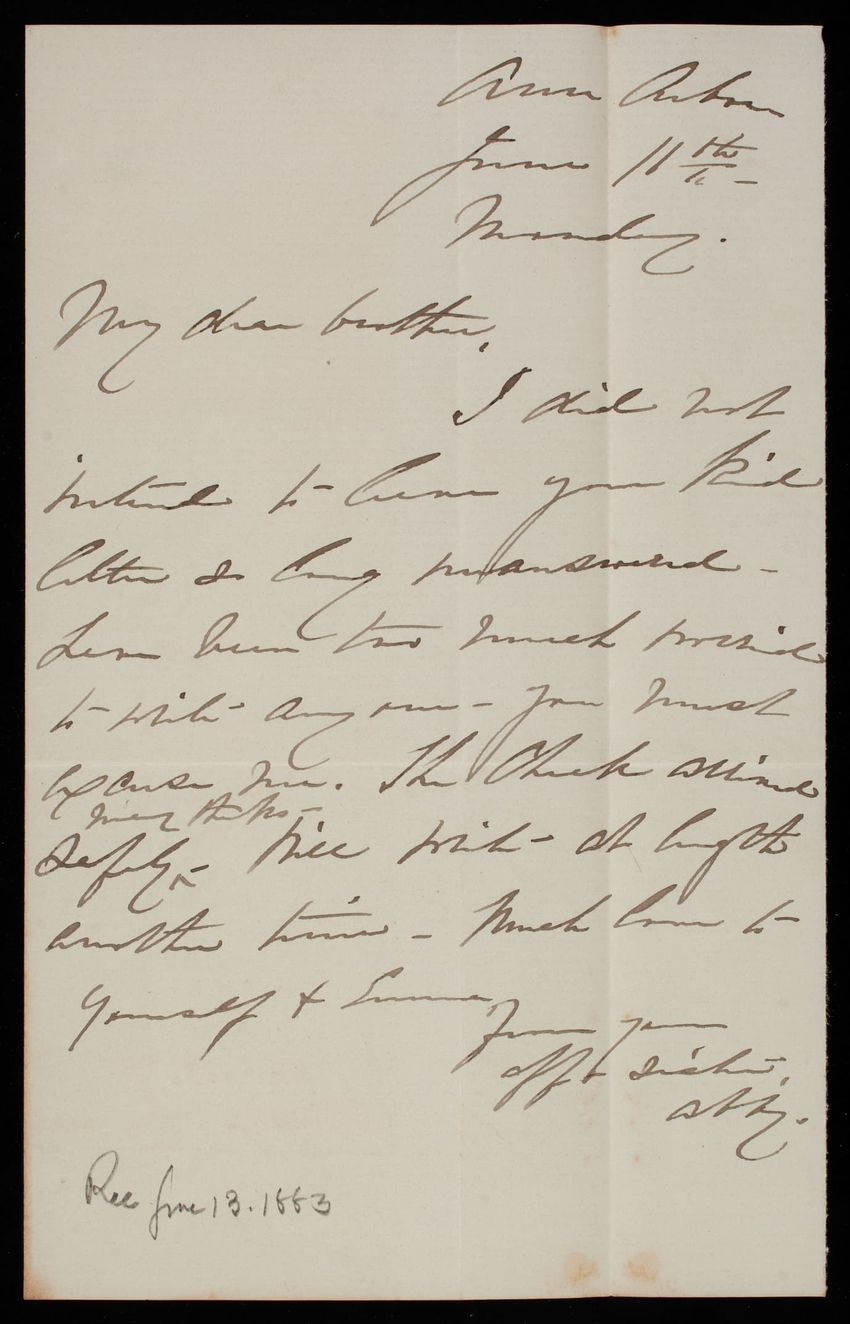 Ann Arbor
June 11th
Monday.
My dear brother,
I did not
intend to leave your kind
letter so long unanswered -
Have been too much worried
to write any one - you must
excuse me. The Check arrived
many thks -
safely - Will write at length
another time - Much love to
yourself & Emma
From your
aff. sister,
Abby.
Rec June 13. 1883